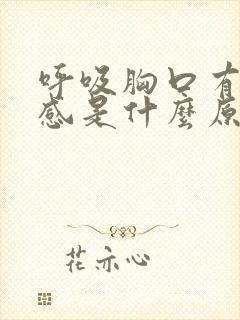 呼吸胸口有
感是什麼原
花亦心